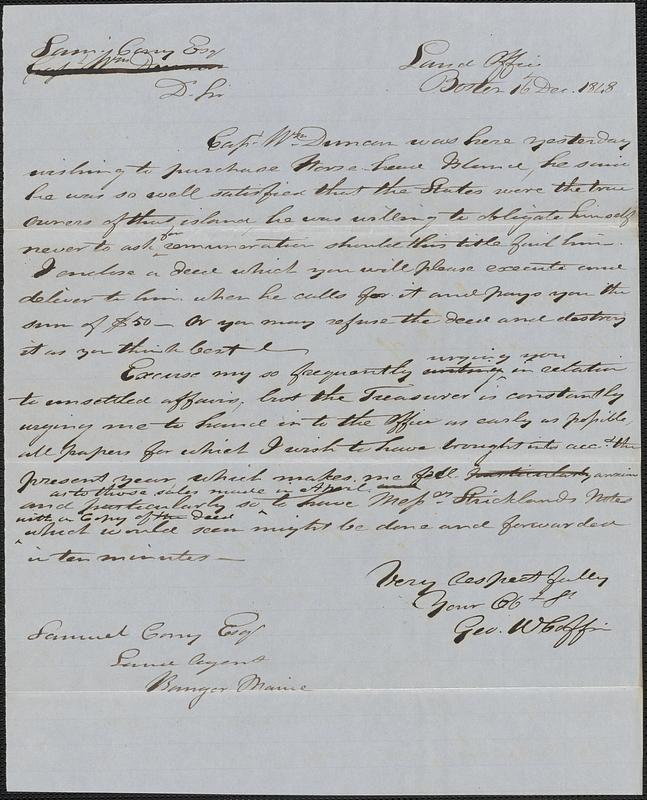 Saml. Cony Esq
Capt Wm Duncan
D. Sir
Land Office
Boston 16 Dec. 1848
Capt. Wm Duncan was here yesterday
wishing to purchase Horse-head Island, he said
he was so well satisfied that the States were the true
owners of that island, he was willing to obligate himself
never to ask for remuneration should this title fail him.
I enclose a deed which you will please execute and
deliver to him when he calls for it and pays you the
sum of $50 — Or you may refuse the deed and destroy
it as you think best
Excuse my so frequently writing urging you in relation
to unsettled affairs, but the Treasurer is constantly
urging me to hand in to the Office as early as possible,
all papers for which I wish to have brought into acct the
present year, which makes me feel particularly anxious
as to those sales made in April and
and particularly so to have Messrs Stricklands Notes
with a Copy of the deed
which would seem might be done and forwarded
in ten minutes —
Very respectfully
Your Obt St
Geo. W Coffin
Samuel Cony Esq
Land Agent
Bangor Maine